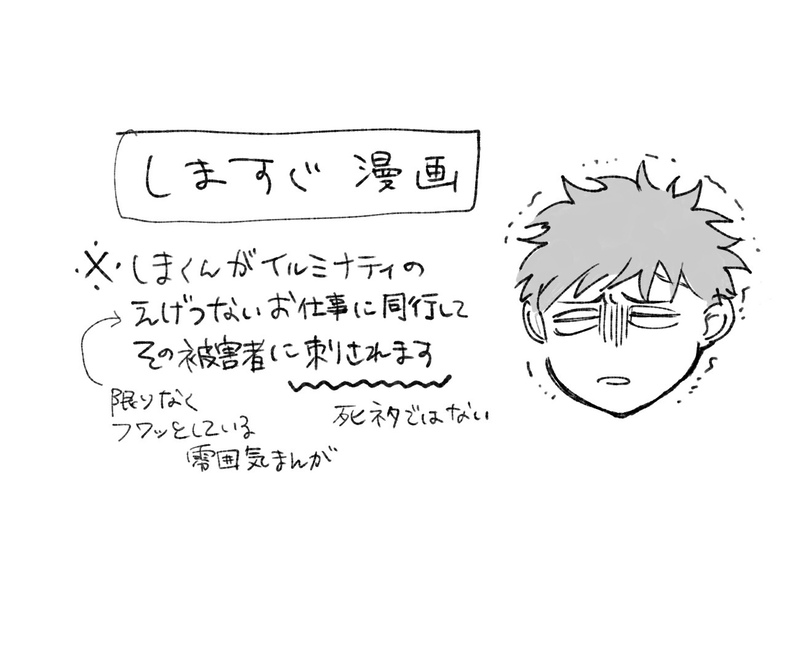 しますぐ 漫画
※しまくんがイルミナティの
えげつないお仕事に同行して
その被害者に刺されます
限りなく
フワッとしている
雰囲気まんが
死ネタではない